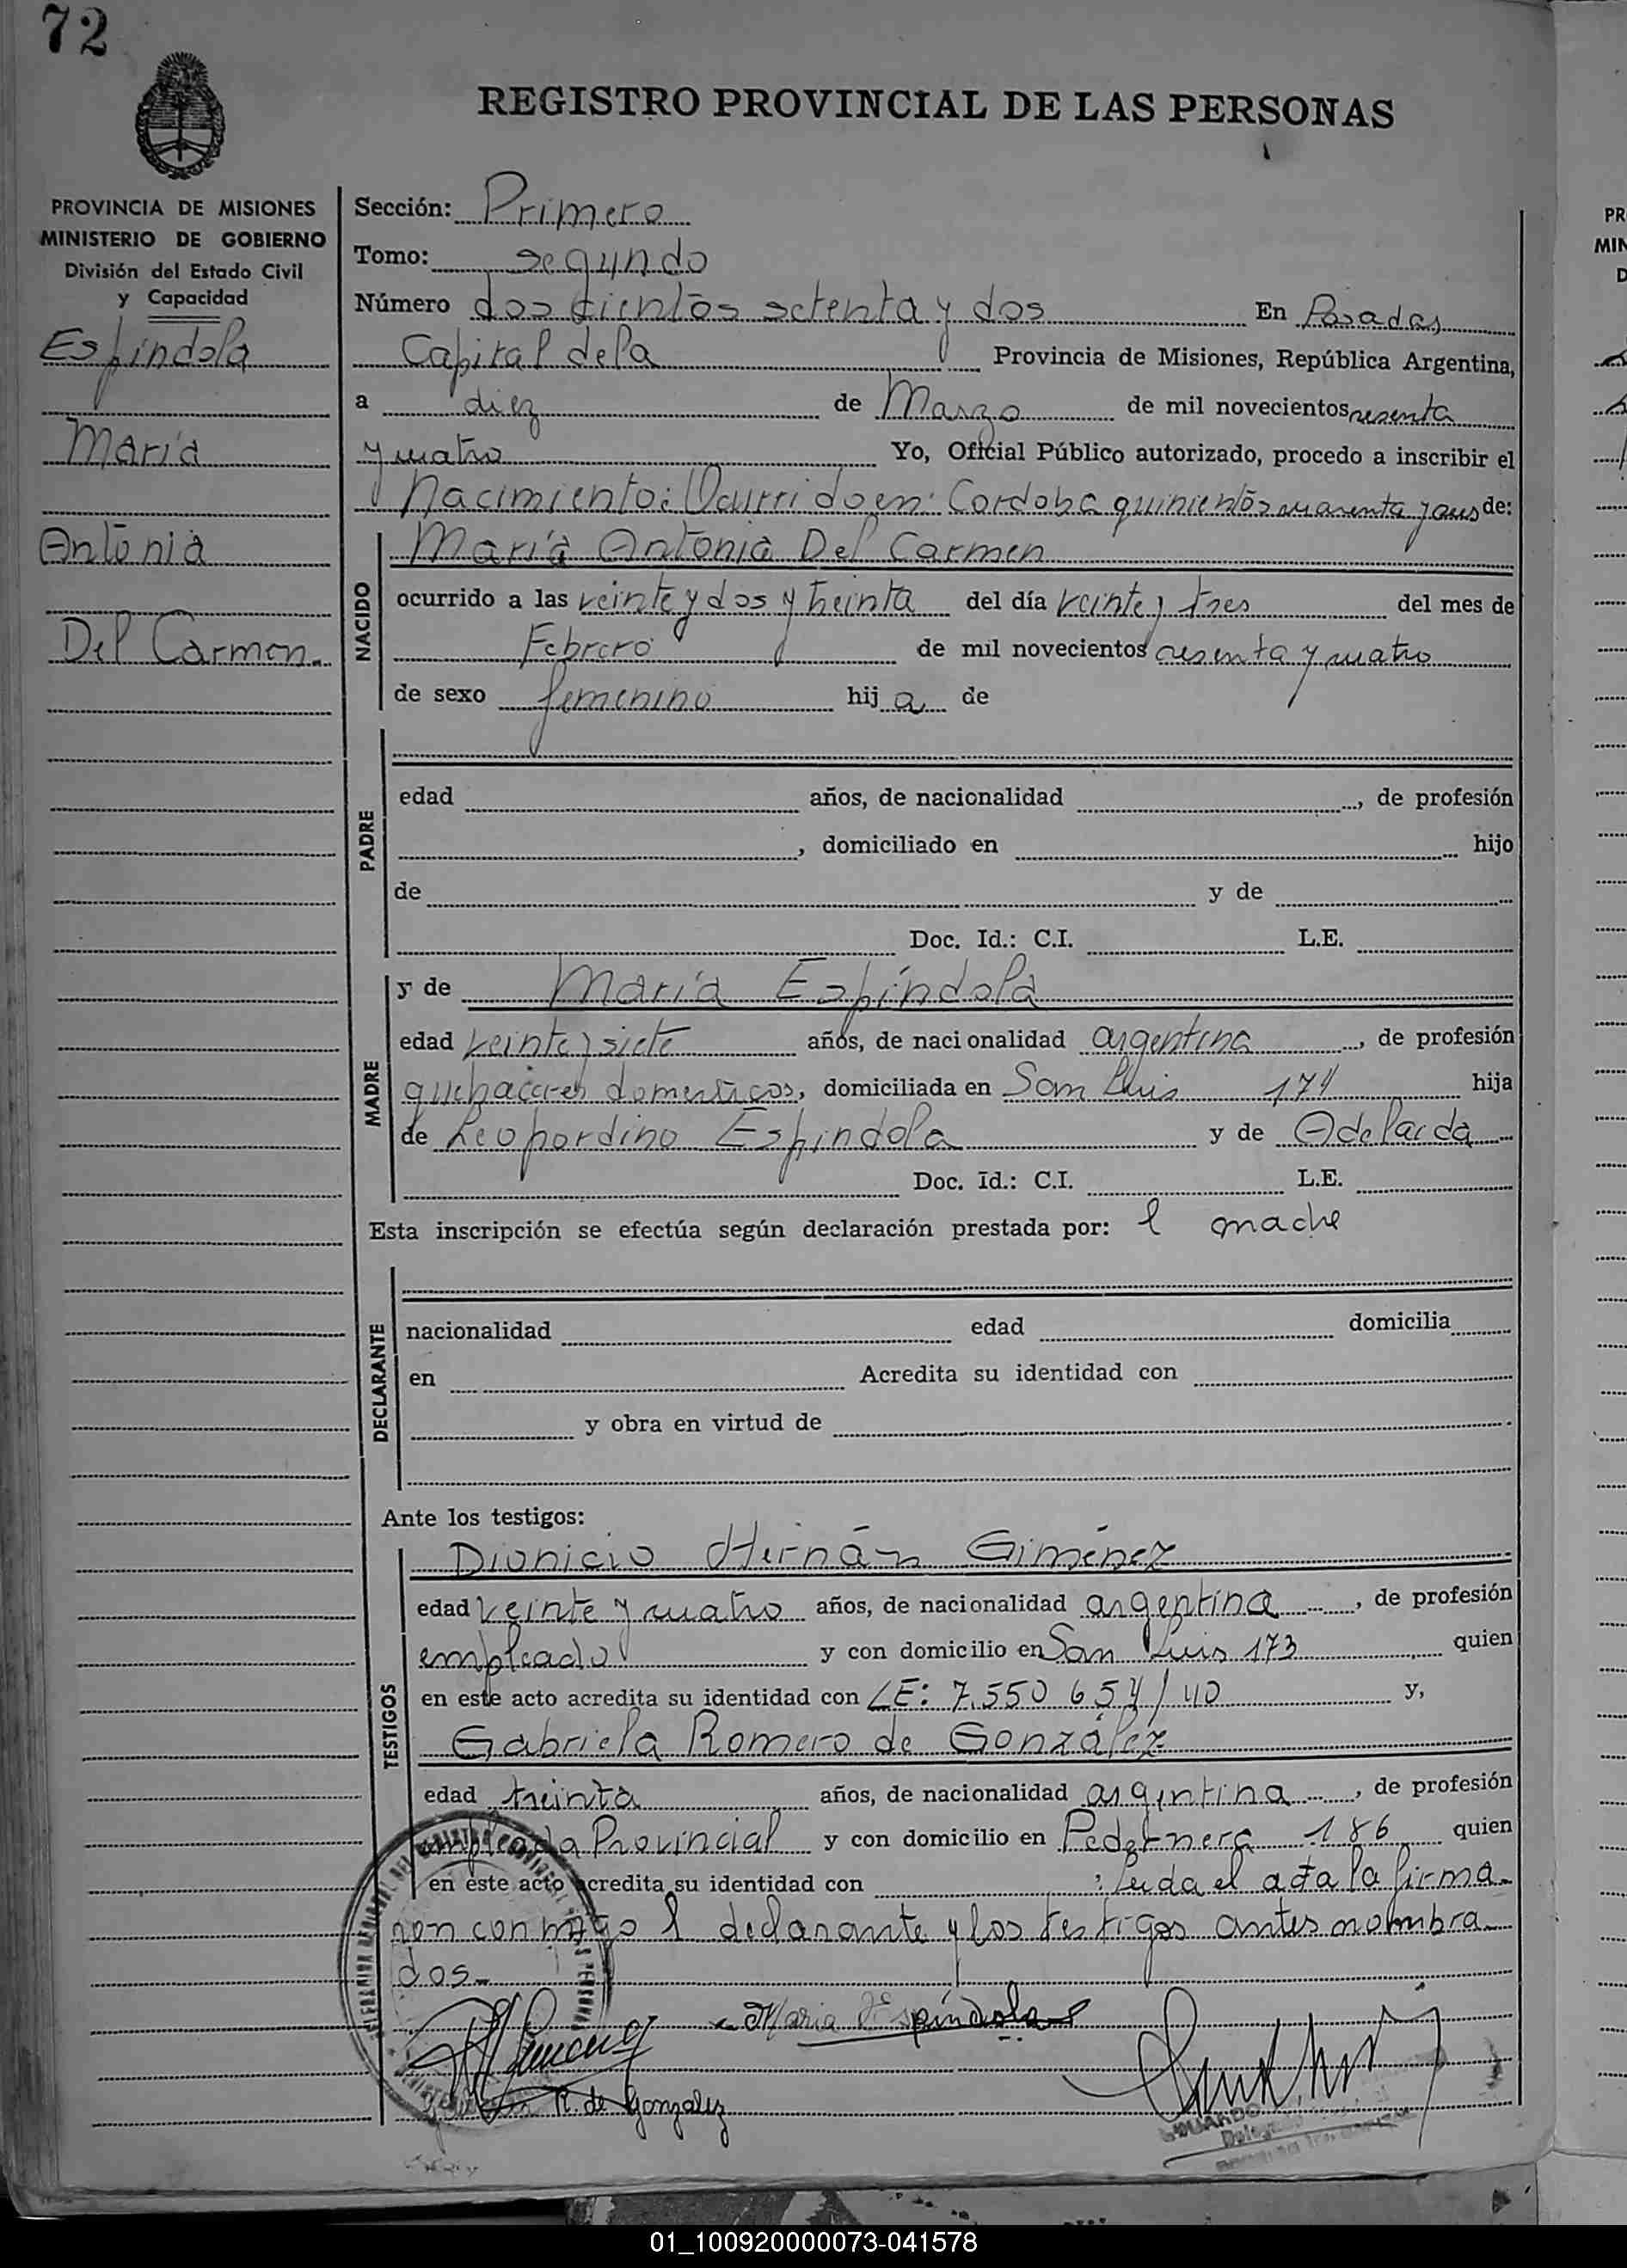 72
REGISTRO PROVINCIAL DE LAS PERSONAS
PROVINCIA DE MISIONES
MINISTERIO DE GOBIERNO
División del Estado Civil
y Capacidad
Espíndola
María
Antonia
Del Carmen.
Sección: Primero
Tomo: segundo
Número doscientos setenta y dos En Posadas
Capital de la Provincia de Misiones, República Argentina,
a diez de Marzo de mil novecientos sesenta
y cuatro Yo, Oficial Público autorizado, procedo a inscribir el
Nacimiento: Ocurrido en: Cordoba quinientos cuarenta y de:
NACIDO
María Antonia Del Carmen
ocurrido a las veinte y dos y treinta del día veinte y tres del mes de
Febrero de mil novecientos sesenta y cuatro
de sexo femenino hij a de
PADRE
edad años, de nacionalidad , de profesión
, domiciliado en hijo
de y de
Doc. Id.: C.I. L.E.
MADRE
y de María Espíndola
edad veinte y siete años, de nacionalidad argentina , de profesión
quehaceres domesticos, domiciliada en San Luis 174 hija
de Leopordino Espindola y de Adelaida
Doc. Id.: C.I. L.E.
Esta inscripción se efectúa según declaración prestada por: l madre
DECLARANTE
nacionalidad edad domicilia
en Acredita su identidad con
y obra en virtud de
Ante los testigos:
TESTIGOS
Dionicio Hernán Giménez
edad veinte y cuatro años, de nacionalidad argentina , de profesión
empleado y con domicilio en San Luis 173 quien
en este acto acredita su identidad con LE: 7.550 654/40 y,
Gabriela Romero de González
edad treinta años, de nacionalidad argentina , de profesión
empleada Provincial y con domicilio en Pedernera 186 quien
en este acto acredita su identidad con : Leida el acta la firma
ron conmigo l declarante y los testigos antes nombra
dos.
Maria Espíndola
R. de Gonzalez
01_100920000073-041578